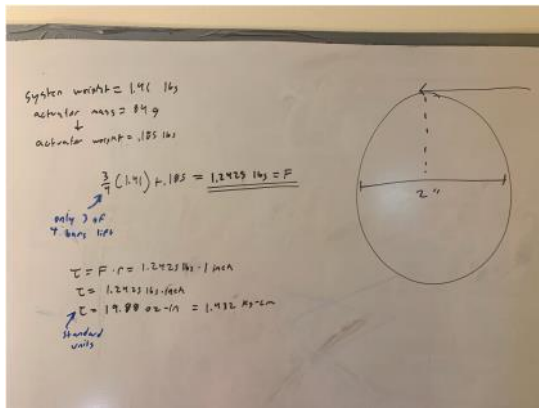 system weight = 1.41 lbs
actuator mass = 84 g
↓
actuator weight = .185 lbs
3/4 (1.41) + .185 = 1.2425 lbs = F
only 3 of
4 bars lift
2"
τ = F · r = 1.2425 lbs · 1 inch
τ = 1.2425 lbs · inch
τ = 19.88 oz-in = 1.432 kg-cm
standard
units